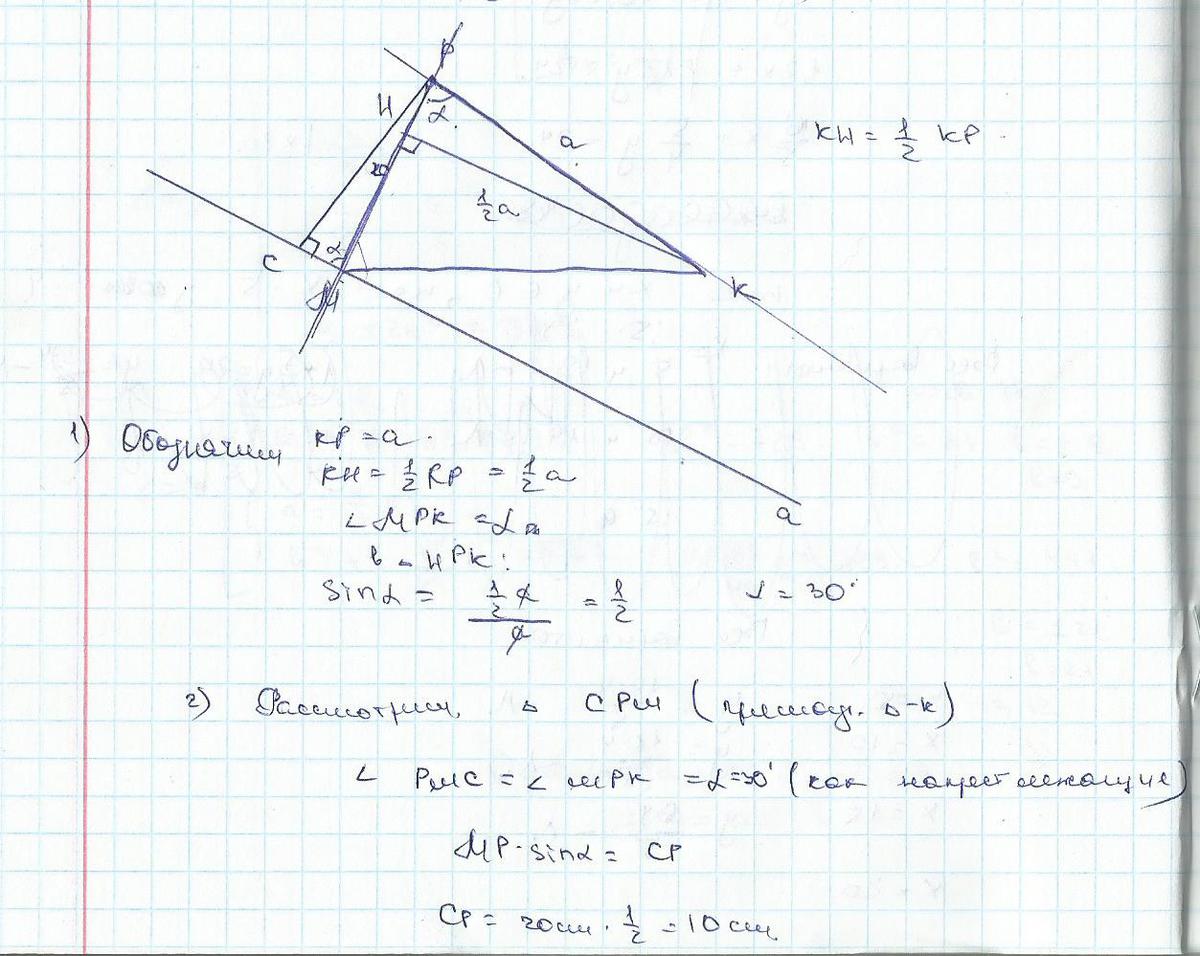 P
H
α
a
KH = 1/2 KP
20
1/2 a
C
α
M
K
a
1) Обозначим KP = a.
KH = 1/2 KP = 1/2 a
∠ MPK = α
в △ HPK:
sin α = (1/2 a)/a = 1/2 α = 30°
2) Рассмотрим △ CPM (прямоуг. △-к)
∠ PMC = ∠ MPK = α = 30° (как накрест лежащие)
MP · sin α = CP
CP = 20 см · 1/2 = 10 см